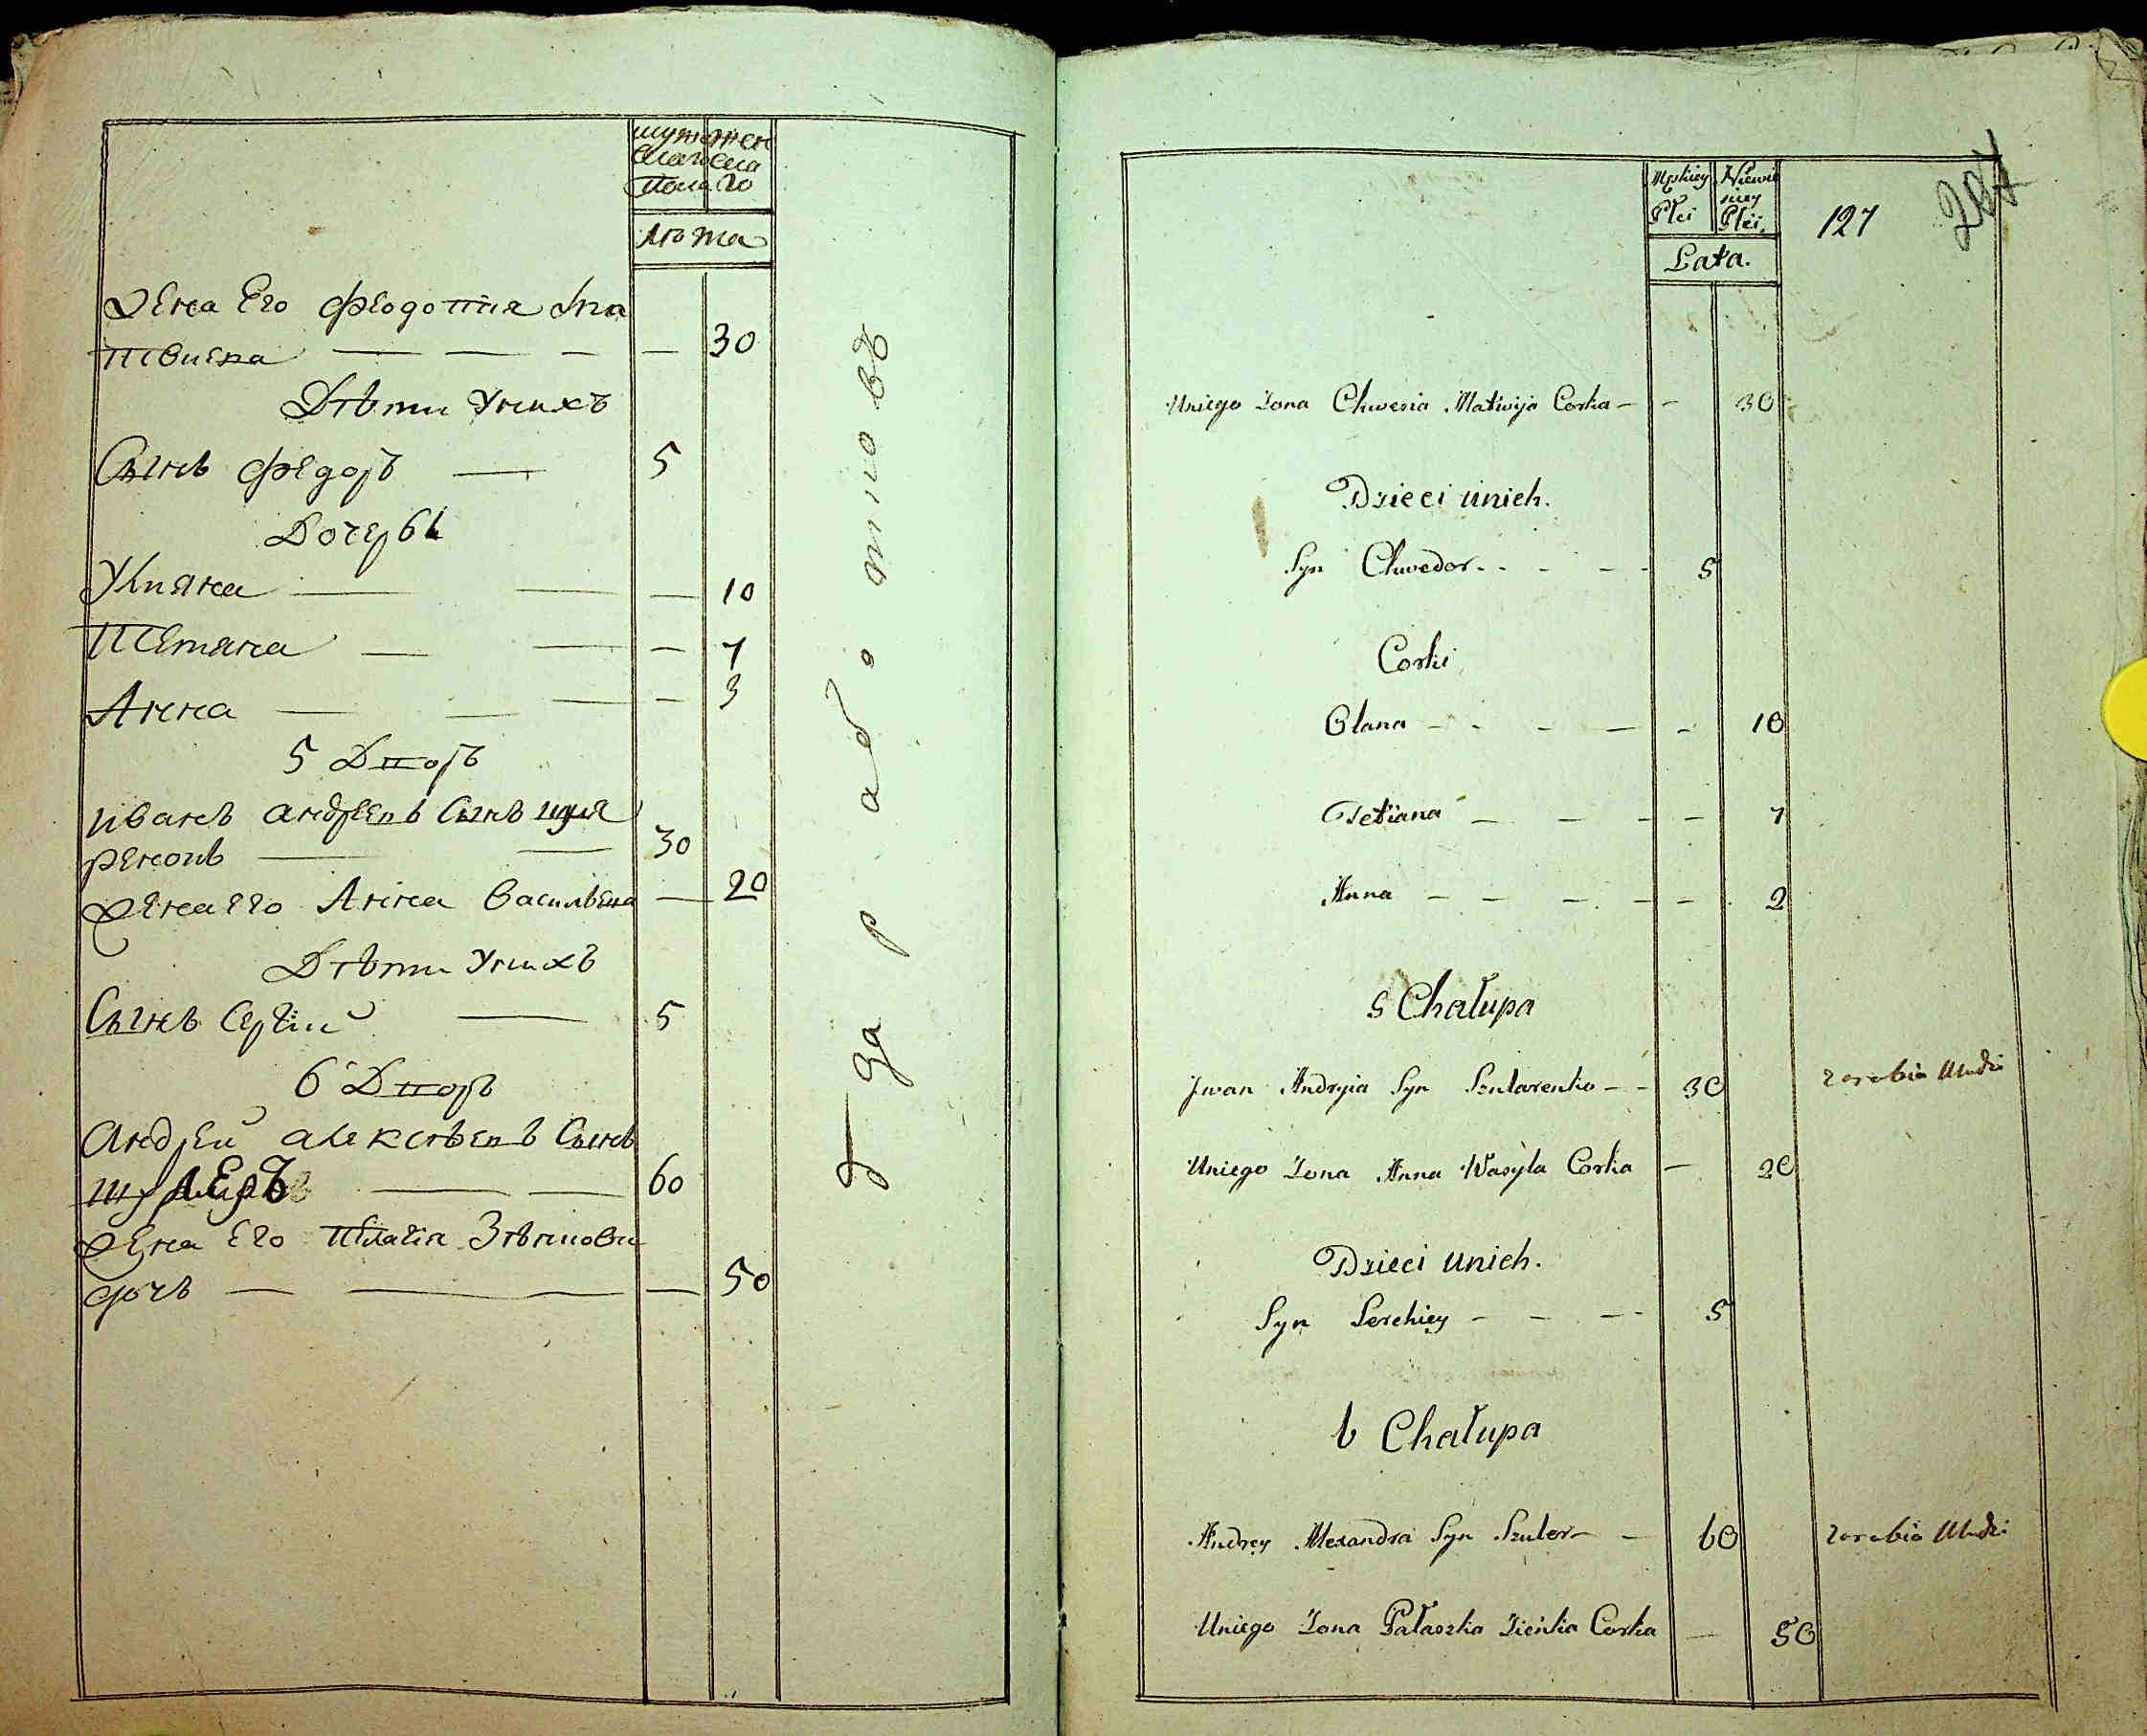 мужеска женска
пола го
лѣта
Жена Его Феодотия Ма
твиева — — — — 30
Дѣти У нихъ
Сынъ Федоръ — 5
Дочерьи
Улияна — — — 10
Тетяна — — — 7
Анна — — — — 3
5 Дворъ
Иванъ андреевъ Сынъ шуля
ренонъ — — 30
Жена его Анна Васильева — 20
Дѣти У нихъ
Сынъ Сергiй — 5
6 Дворъ
Андрей алексѣевъ Сынъ
шулеръ — — 60
Жена Его Пелагiя Зѣннови
дочь — — — — 50
заработновъ
Męskiey Niewie
niey
Płci Płci.
Lata.
127
Uniego Zona Chwesia Matwija Corka — — 30
Dzieci unich.
Syn Chwedor - - - - - 5
Corki
Olana — - - — - 10
Tetiana — — - — 7
Anna — — — - - 2
5 Chałupa
Jwan Andryia Syn Szularenko — - 30 zarabia
Uniego Zona Anna Wasyla Corka — 20
Dzieci unich.
Syn Serchiey — - — - 5
6 Chałupa
Andrey Alexandra Syn Szuler — — 60 zarabia
Uniego Zona Pałaszka Zieńka Corka — 50